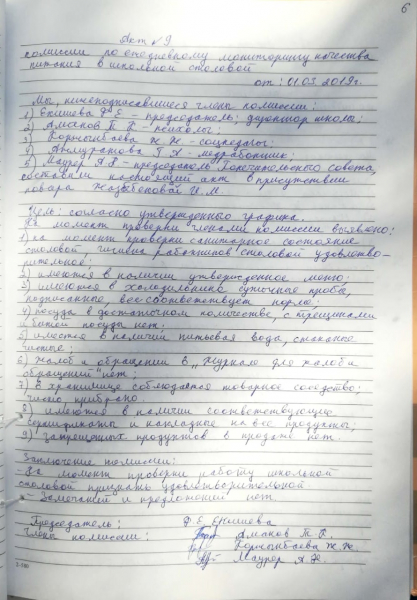 6
Акт № 9
комиссии по ежедневному мониторингу качества
питания в школьной столовой
от: 01.03.2019г.
Мы, нижеподписавшиеся члены комиссии:
1) Екишева Ф Е - председатель, директор школы;
2) Аманов Т Е - психолог;
3) Горчынбаева Ж Ж - соцпедагог;
4) Г А - медработник;
5) Маурер А Я - председатель Попечительского совета,
составили настоящий акт в присутствии
повара Назыбековой И. М
Цель: согласно утвержденного графика.
На момент проверки членами комиссии выявлено:
1) на момент проверки санитарное состояние
столовой, гигиена работников столовой удовлетво-
рительное;
2) имеются в наличии утвержденное меню;
3) имеются в холодильнике суточные пробы,
подписанные, вес соответствует норме;
4) посуда в достаточном количестве, с трещинами
и битой посуды нет;
5) имеется в наличии питьевая вода, стаканы
чистые;
6) Жалоб и обращений в "Журнале для жалоб и
обращений" нет;
7) В хранилище соблюдается товарное соседство;
чисто, прибрано.
8) имеются в наличии соответствующие
сертификаты и накладные на все продукты;
9) запрещенных продуктов в продаже нет.
Заключение комиссии:
- На момент проверки работу школьной
столовой признать удовлетворительной
- Замечаний и предложений нет.
Председатель: Ф. Е. Екишева
Члены комиссии: Аманов Т. Е.
Горчынбаева Ж. Ж.
Маурер А Я.